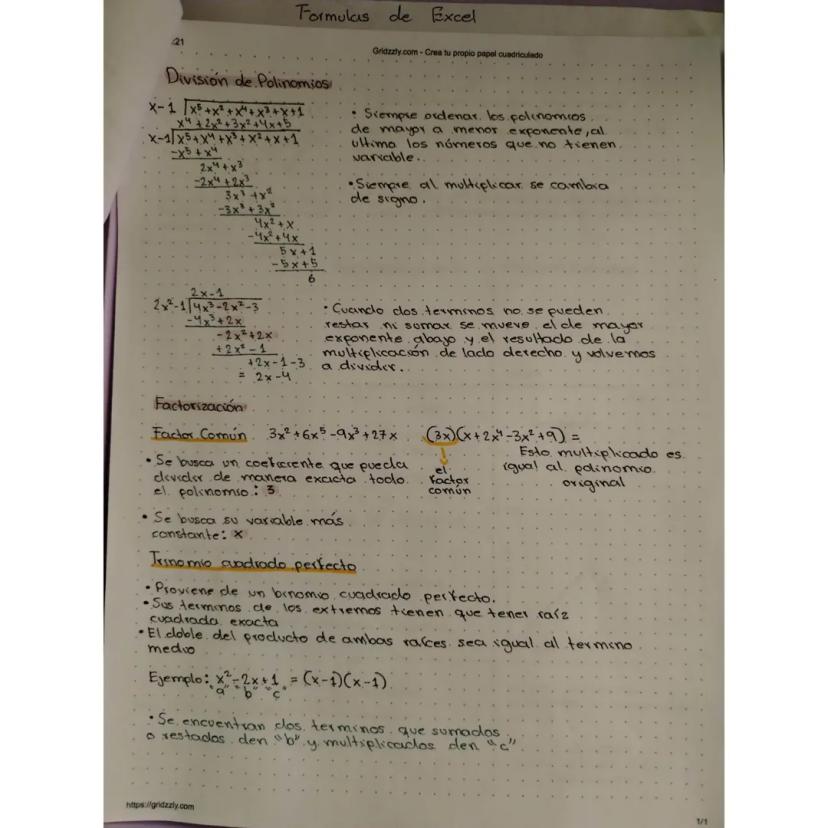 Formulas de Excel
21
Gridzzly.com - Crea tu propio papel cuadriculado
División de Polinomios
x-1 | x⁵+x²+x⁴+x³+x+1
x⁴+2x²+3x²+4x+5
x-1 | x⁵+x⁴+x³+x²+x+1
-x⁵+x⁴
2x⁴+x³
-2x⁴+2x³
3x³+x²
-3x³+3x²
4x²+x
-4x²+4x
5x+1
-5x+5
6
• Siempre ordenar los polinomios
de mayor a menor exponente, al
ultimo los números que no tienen
variable.
• Siempre al multiplicar se cambia
de signo.
2x-1
2x²-1 | 4x³-2x²-3
-4x³+2x
-2x²+2x
+2x²-1
+2x-1-3
= 2x-4
• Cuando dos terminos no se pueden
restar ni sumar se mueve el de mayor
exponente abajo y el resultado de la
multiplicación de lado derecho y volvemos
a dividir.
Factorización
Factor Común 3x²+6x⁵-9x³+27x (3x)(x+2x⁴-3x²+9) =
el
factor
común
Esto multiplicado es
igual al polinomio
original
• Se busca un coeficiente que pueda
dividir de manera exacta todo
el polinomio: 3
• Se busca su variable más
constante: x
Trinomio cuadrado perfecto
• Proviene de un binomio cuadrado perfecto.
• Sus terminos de los extremos tienen que tener raíz
cuadrada exacta
• El doble del producto de ambas raíces sea igual al termino
medio
Ejemplo: x²-2x+1 = (x-1)(x-1)
"a" "b" "c"
• Se encuentran dos terminos que sumados
o restados den "b" y multiplicados den "c"
https://gridzzly.com
1/1